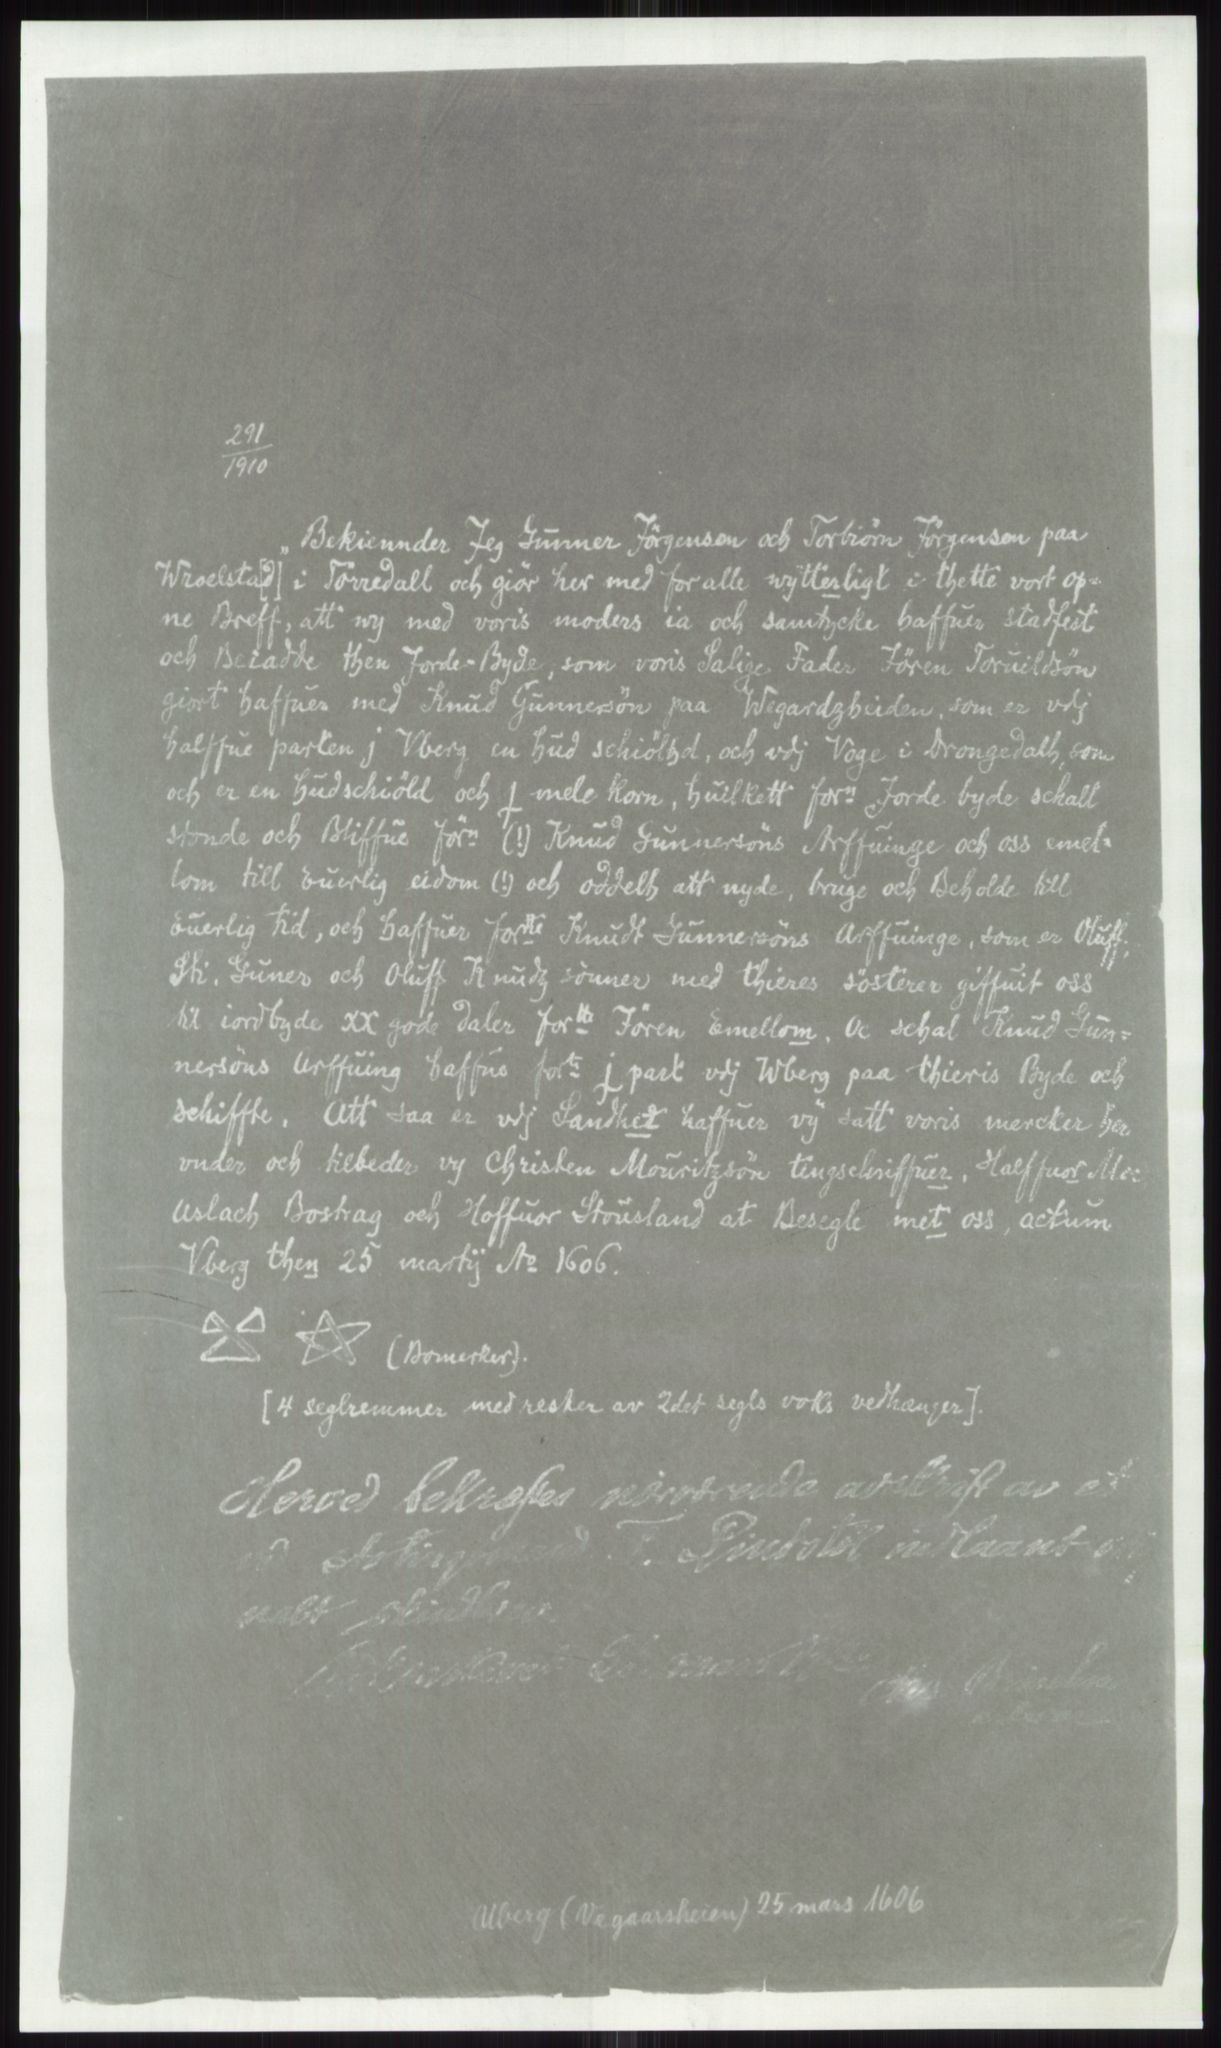 291
1910
„Bekiennder Jeg Gunner Jörgensen och Torbiörn Jörgensen paa
Wroelsta[d] i Törredall och giör her med for alle wytterligt i thette vort op=
ne Breff, att wy med voris moders ia och samtycke haffuer stadfest
och Beiadde then Jorde-Byde, som voris Salige Fader Jören Toruildsön
giort haffuer med Knud Gunnersön paa Wegardzheiden, som er vdj
halffue parten j Vberg en hud schiölhd, och vdj Voge i Drongedalh, som
och er en hudschiöld och j mele korn, huilkett forn Jorde byde schall
stonde och Bliffue förn (!) Knud Gunnersöns Arffuinge och oss emel=
lom till euerlig eidom (!) och oddelh att nyde, bruge och Beholde till
euerlig tid, och haffuer forne Knudt Gunnersöns Arffuinge, som er Oluff,
Sti. Guner och Oluff Knudz sönner med thieres sösterer giffuit oss
til iordbyde XX gode daler forne Jören Emellom. Oc schal Knud Gun=
nersöns Arffuing haffue forte j part vdj Wberg paa thieris Byde och
schiffte. Att saa er vdj Sandhet haffuer vy satt voris mercker her
vnder och tilbeder vy Christen Mouritzsön tingschriffuer, Halffuor Mo:
Aslach Bostrag och Hoffuor Stousland at Besegle met oss, actum
Vberg then 25 martij Ao 1606.
(Bomerker).
[4 seglremmer med rester av 2det segls voks vedhænger].
Herved bekræftes nærværende avskrift av et
av Stortingsmand T. indlaant
nalt skindbrev.
Uberg (Vegaarsheien) 25 mars 1606